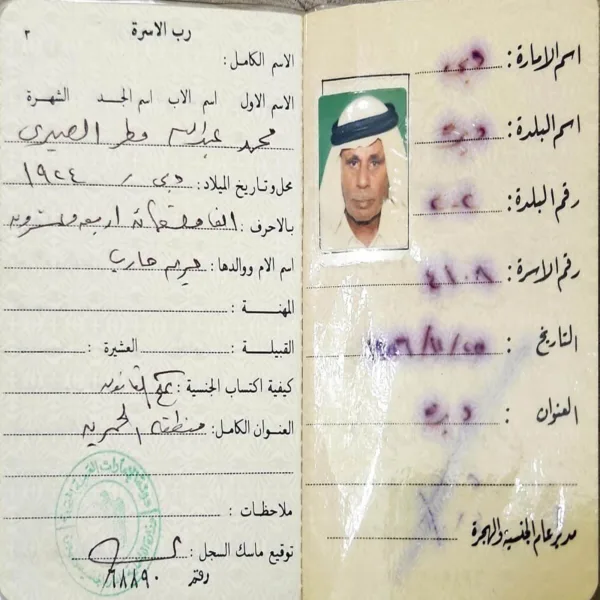 اسم الامارة: دبي
اسم البلدة: دبي
رقم البلدة: ٢٠٢
رقم الاسرة: ٤١٠٨
التاريخ:
العنوان: دبي
مدير عام الجنسية والهجرة
٢
رب الاسرة
الاسم الكامل:
الاسم الاول اسم الاب اسم الجد الشهرة
محمد عبدالله مطر
محل وتاريخ الميلاد: دبي / ١٩٢٤
بالاحرف:
اسم الام ووالدها: مريم حارب
المهنة:
القبيلة: العشيرة:
كيفية اكتساب الجنسية: بحكم القانون
العنوان الكامل: منطقة
ملاحظات:
توقيع ماسك السجل:
رقم ٦٨٨٩٠